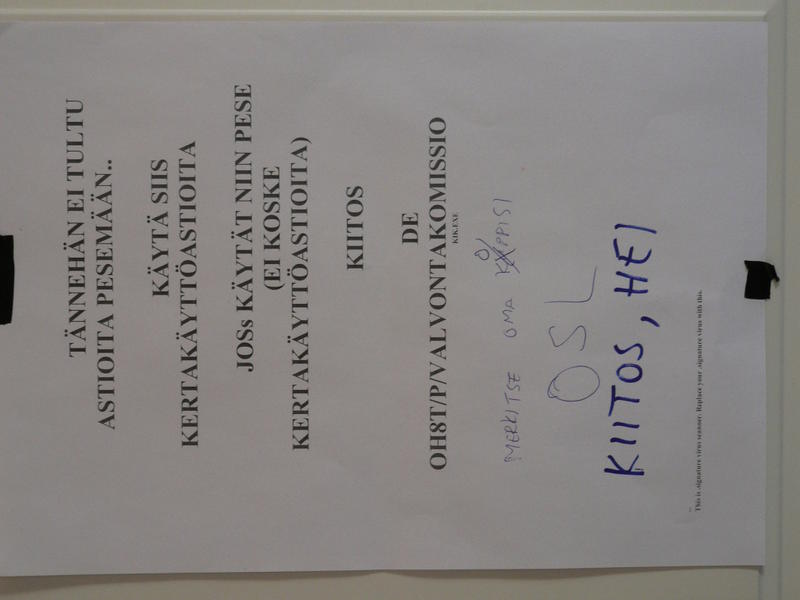 TÄNNEHÄN EI TULTU
ASTIOITA PESEMÄÄN..
KÄYTÄ SIIS
KERTAKÄYTTÖASTIOITA
JOSs KÄYTÄT NIIN PESE
(EI KOSKE
KERTAKÄYTTÖASTIOITA)
KIITOS
DE
OH8T/P/VALVONTAKOMISSIO
KIK.EXE
MERKITSE OMA KOPPISI
OSL
KIITOS, HEI
--
This is .signature virus scanner. Replace your .signature virus with this.